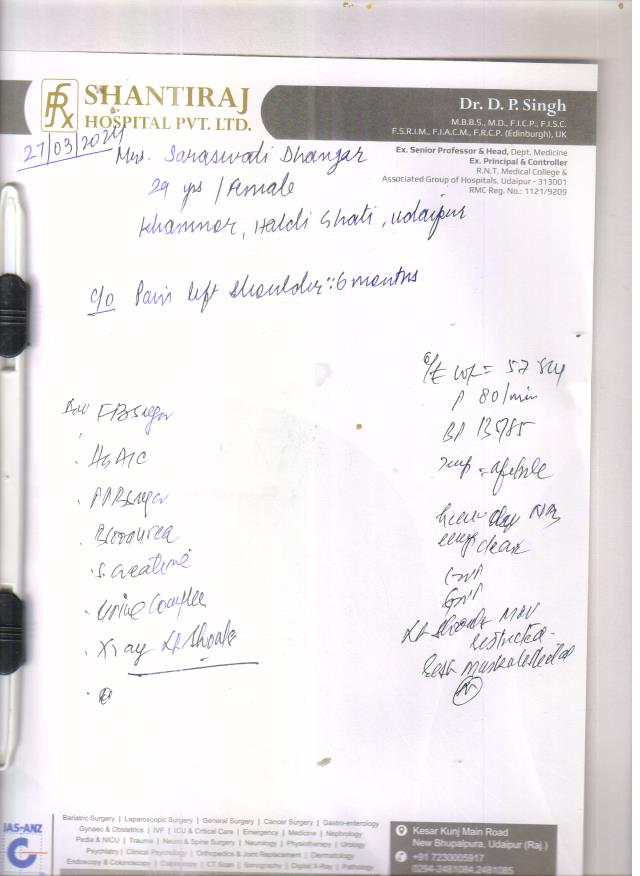 SHANTIRAJ
HOSPITAL PVT. LTD.
Dr. D. P. Singh
M.B.B.S., M.D., F.I.C.P., F.I.S.C.
F.S.R.I.M., F.I.A.C.M., F.R.C.P. (Edinburgh), UK
Ex. Senior Professor & Head, Dept. Medicine
Ex. Principal & Controller
R.N.T. Medical College &
Associated Group of Hospitals, Udaipur - 313001
RMC Reg. No.: 1121/9209
27/03/2024
Mrs. Saraswati Dhangar
29 yrs / Female
Khamnor, Haldi Ghati, Udaipur
c/o Pain left shoulder :: 6 months
O/E wt =
P 80/min
BP 135/85
Temp = afebrile
clear
Lt Shoulder
restricted.
FBSugar
HbA1C
PPBsugar
Blood urea
S. creatinine
Urine Complete
Xray Lt Shoulder
Bariatric Surgery | Laparoscopic Surgery | General Surgery | Cancer Surgery | Gastro-enterology
Gynaec & Obstetrics | IVF | ICU & Critical Care | Emergency | Medicine | Nephrology
Pedia & NICU | Trauma | Neuro & Spine Surgery | Neurology | Physiotherapy | Urology
Psychiatry | Clinical Psychology | Orthopedics & Joint Replacement | Dermatology
Endoscopy & Colonoscopy | | CT Scan | Sonography | Digital X-Ray | Pathology
Kesar Kunj Main Road
New Bhupalpura, Udaipur (Raj.)
+91 7230005917
0294-2481084,2481085
JAS-ANZ